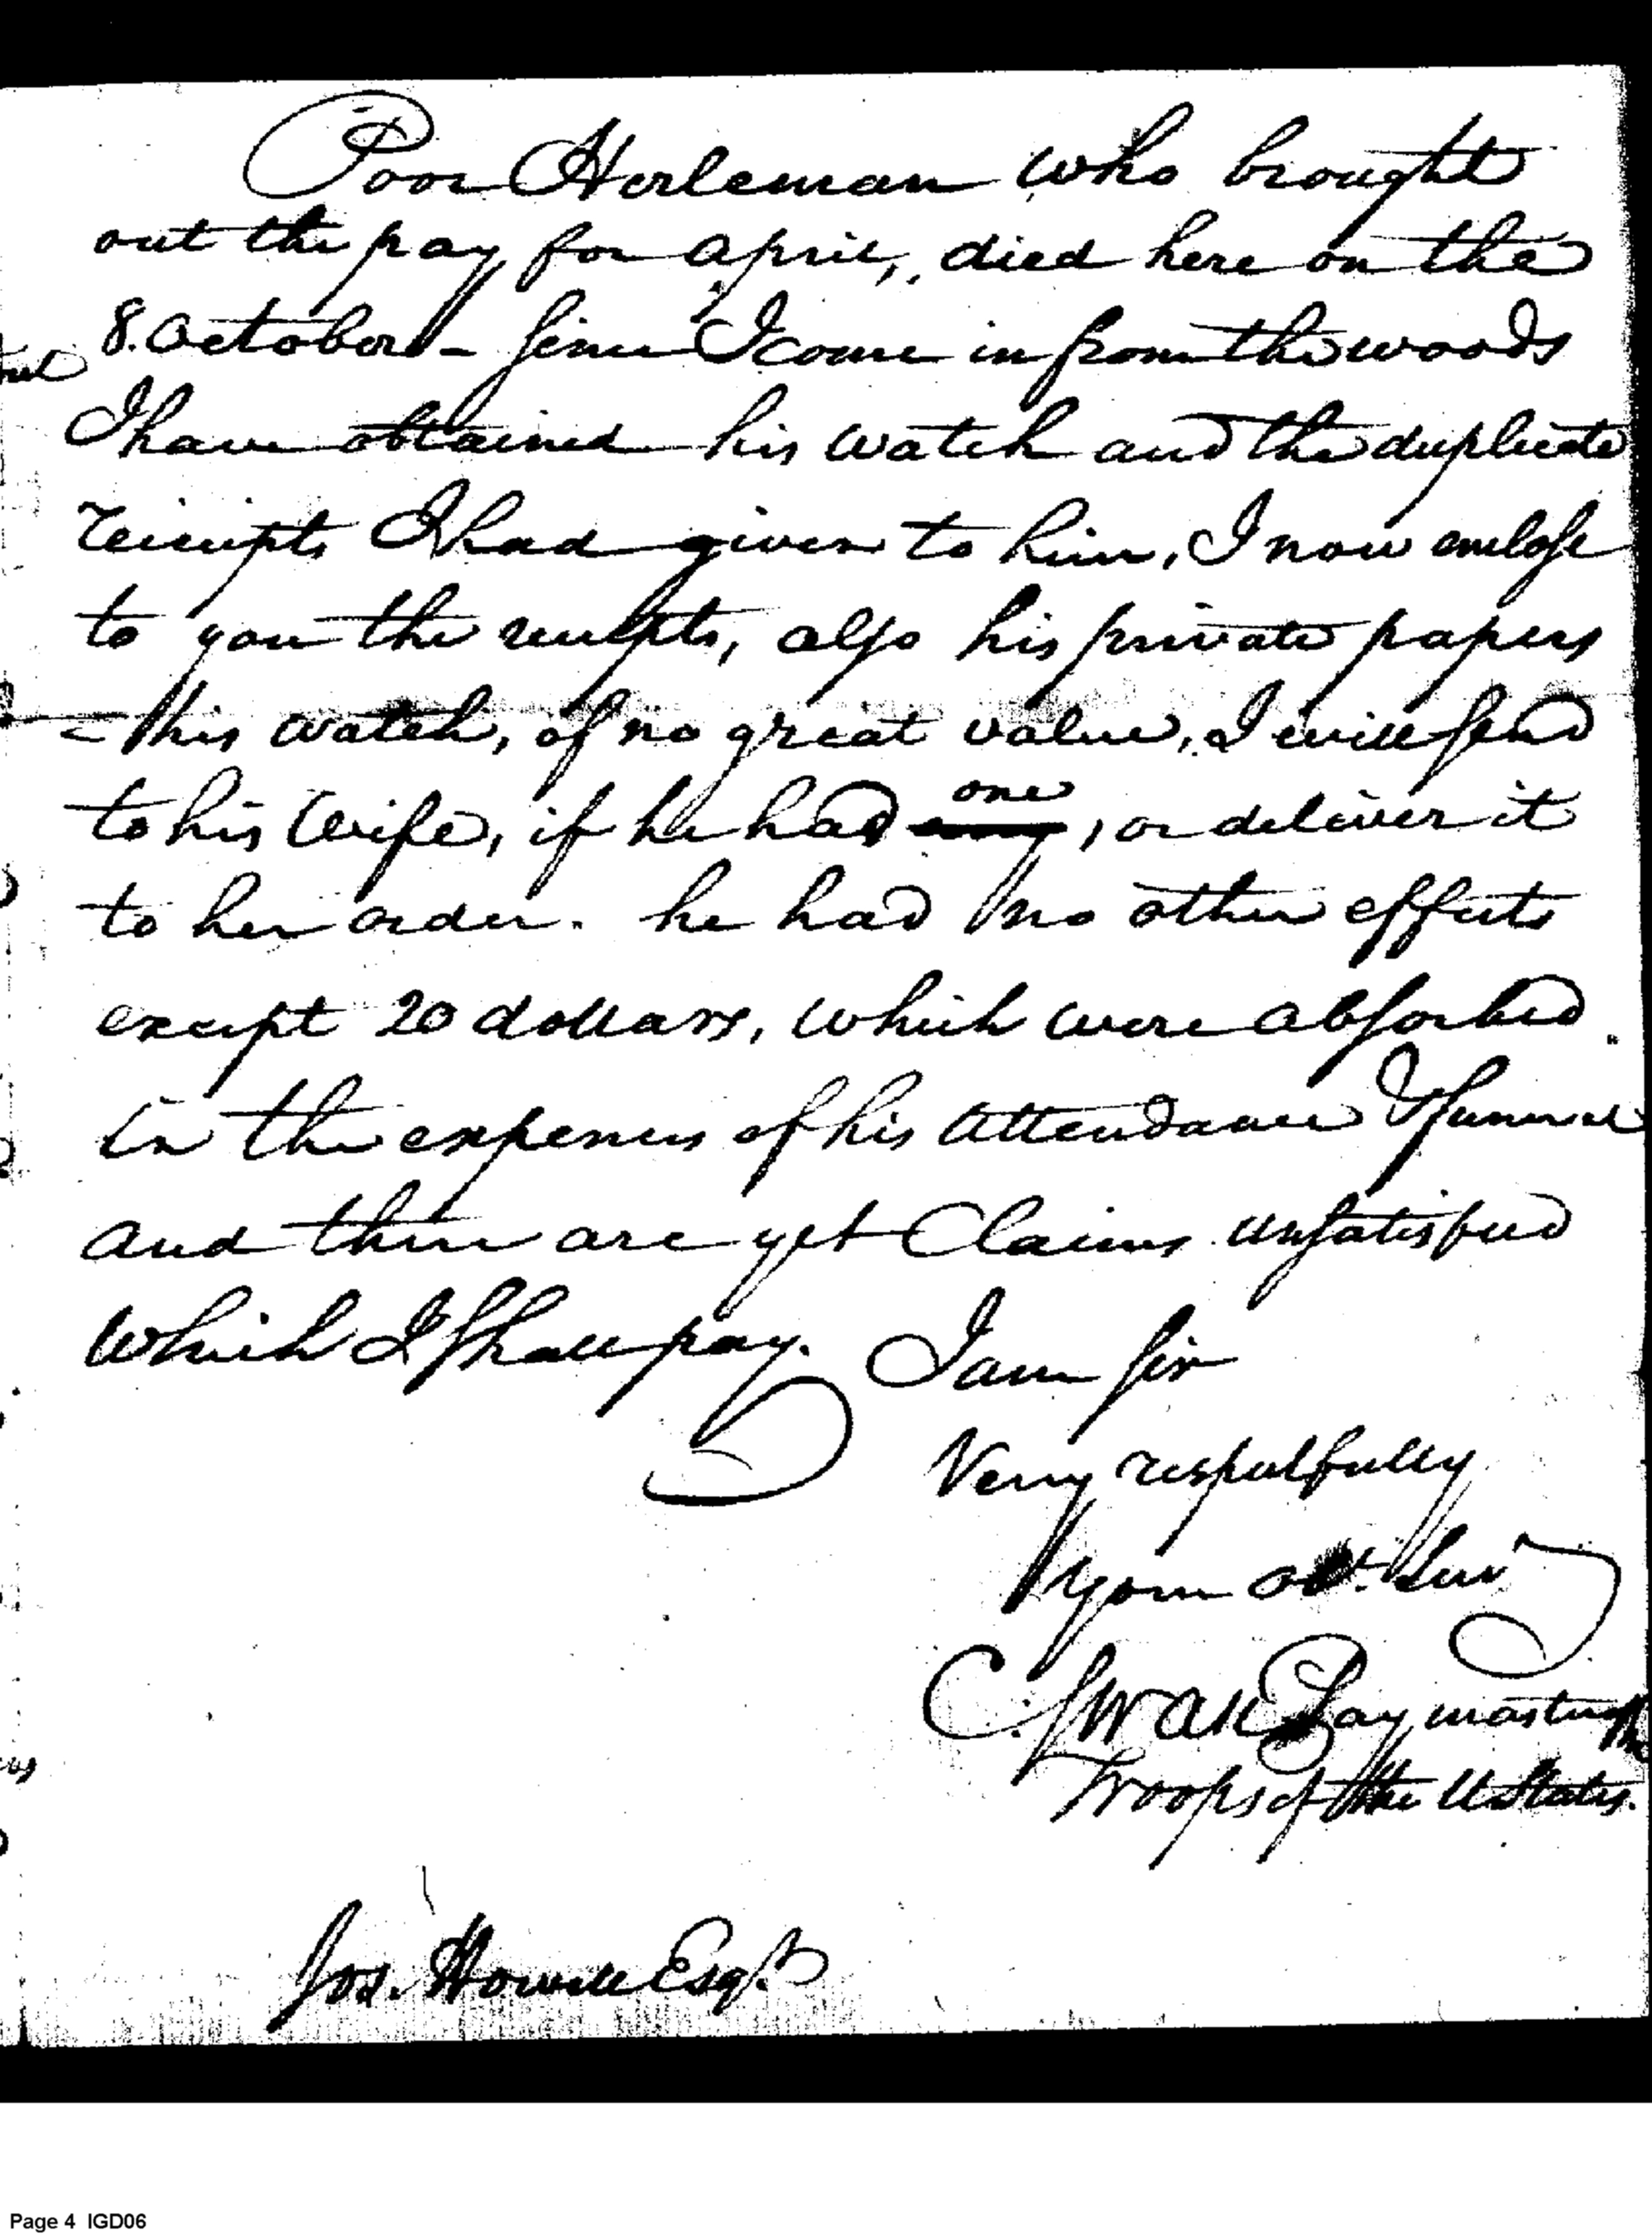 Poor Herleman who brought
out the pay for April, died here on the
8. October - since I come in from the woods
I have obtained his watch and the duplicate
receipts I had given to him, I now enclose
to you the receipts, also his private papers
- his watch, of no great value, I will send
to his Wife, if he had one, or deliver it
to her order. he had no other effects
except 20 dollars, which were absorbed
in the expenses of his attendance & funeral
and there are yet Claims unsatisfied
which I shall pay. I am sir
Very respectfully
Your obt. Serv
C. Swan Paymaster
Troops of the U States.
Jos. Howell Esqr.
Page 4 IGD06